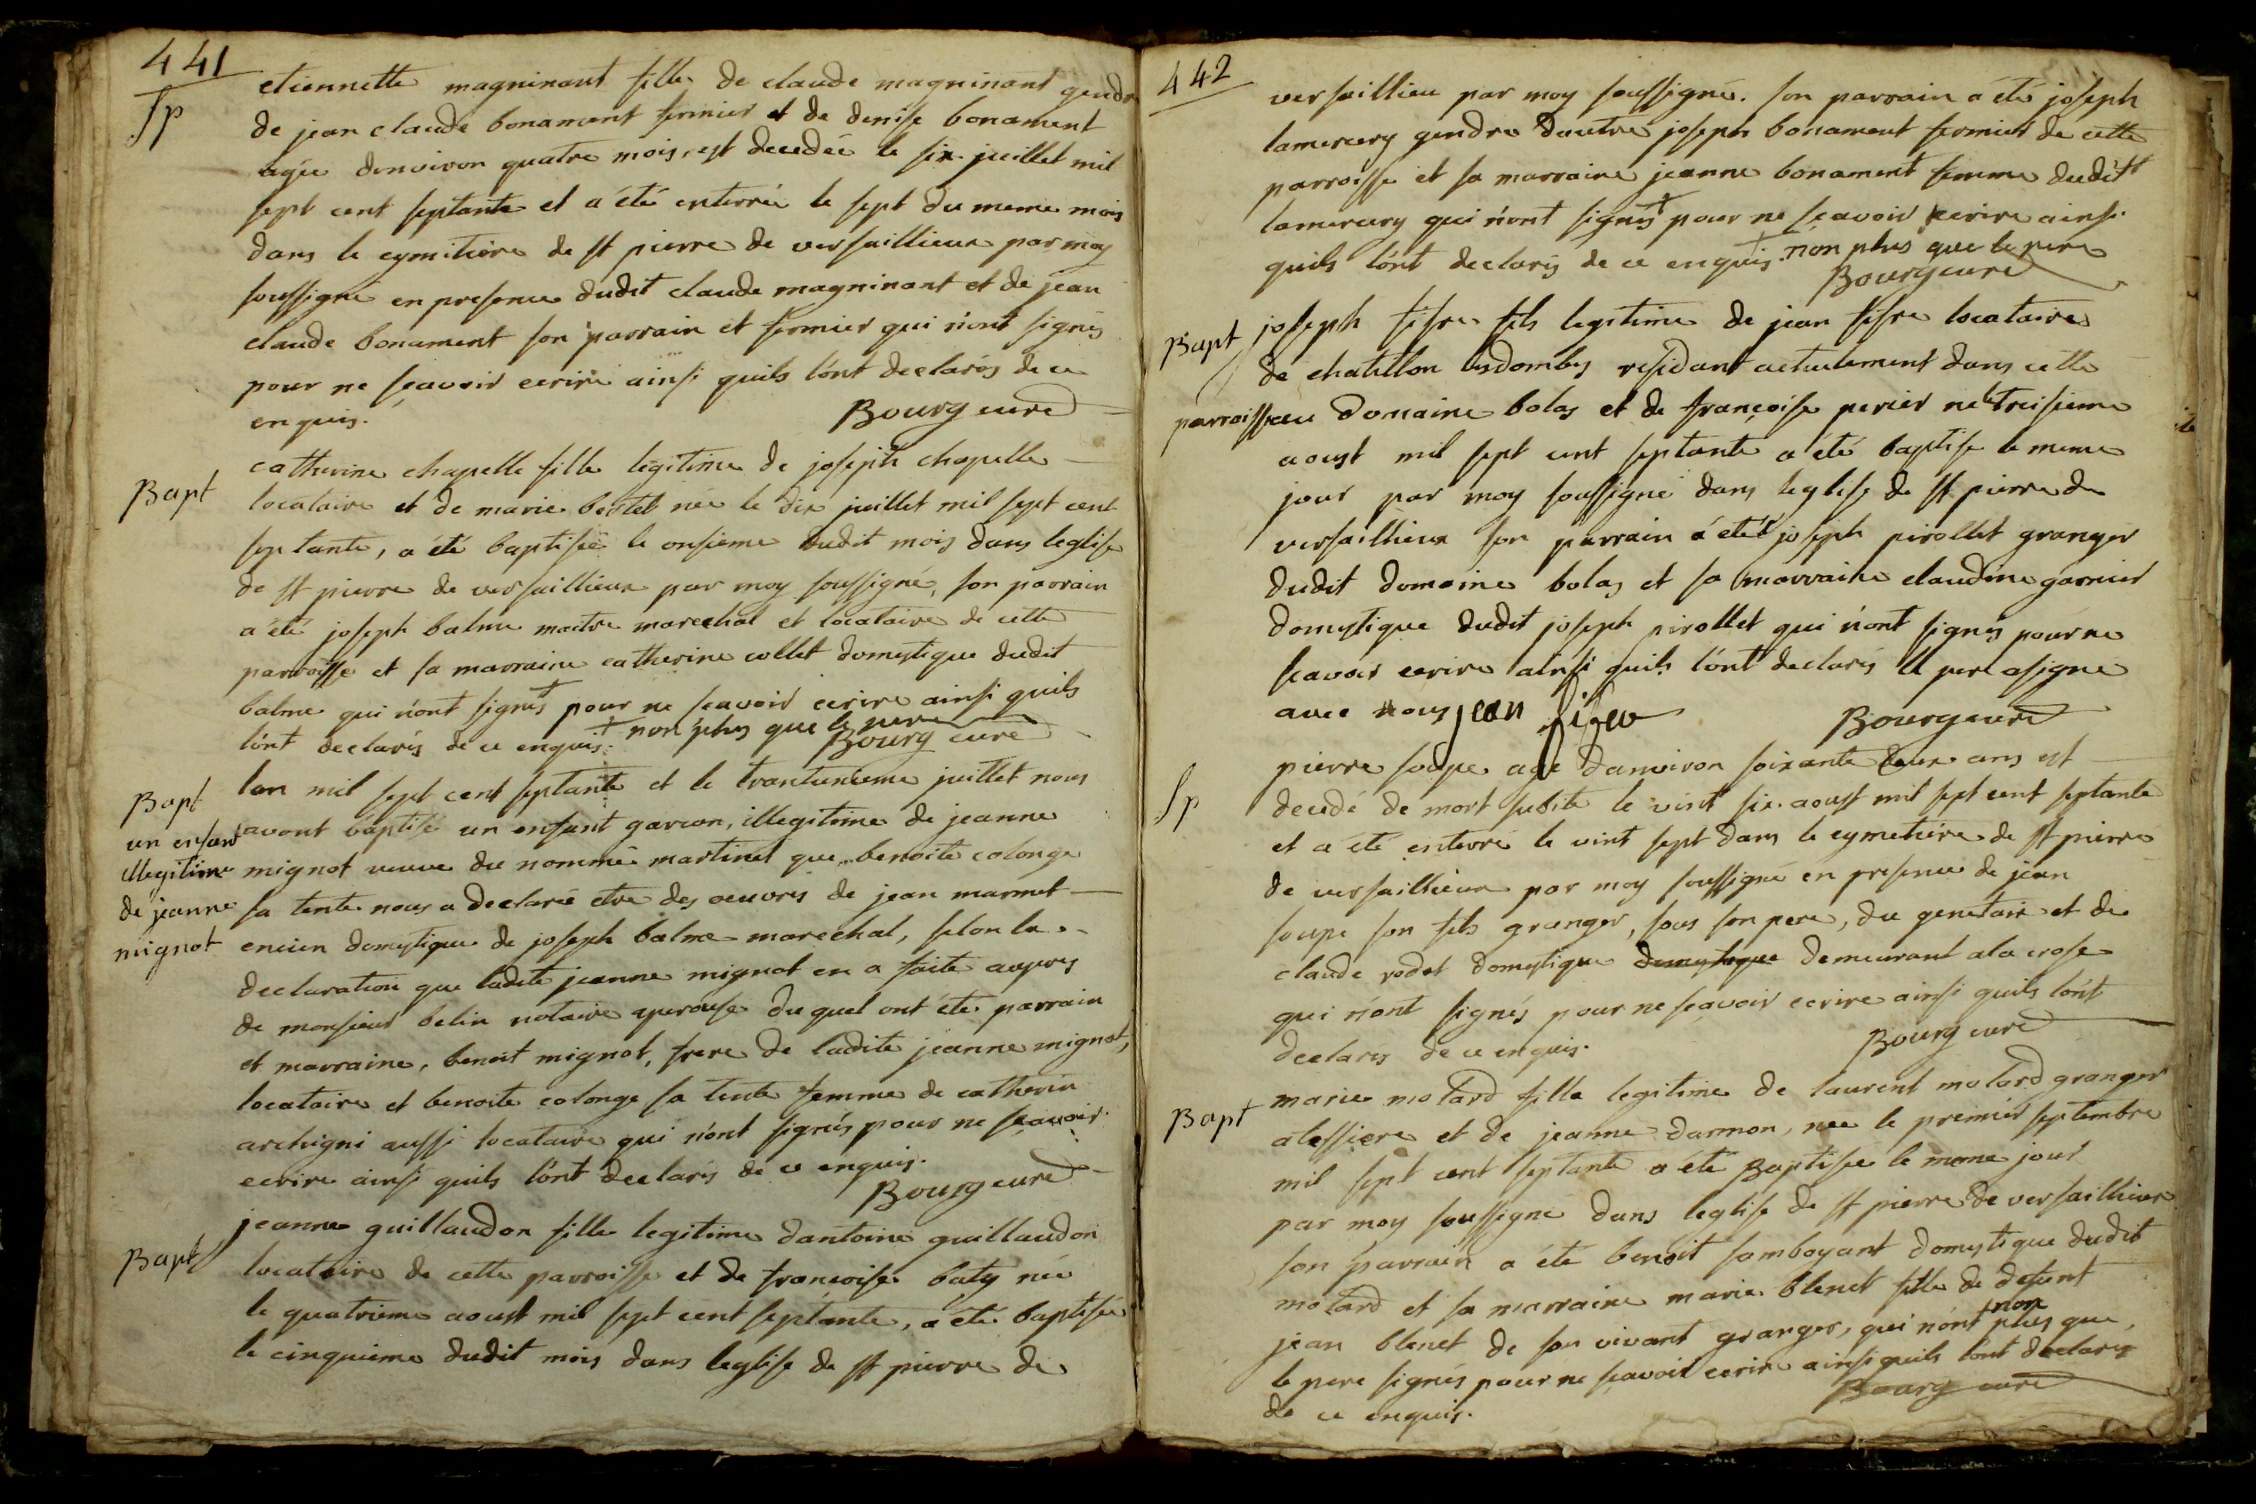 441
Sp
etiennette magninant fille de claude magninant gendre
de jean claude bonament fermier et de denise bonament
agée denviron quatre mois, est decedée le six juillet mil
sept cent septante et a été enterrée le sept du meme mois
dans le cymitiere de st pierre de versaillieux par moy
soussigné en presence dudit claude magninant et de jean
claude bonament son parrain et fermier qui n'ont signés
pour ne sçavoir ecrire ainsi quils l'ont declarés de ce
enquis. Bourg curé
Bapt
catherine chapelle fille legitime de joseph chapelle
locataire et de marie bertet née le dix juillet mil sept cent
septante, a été baptisée le onsieme dudit mois dans leglise
de st pierre de versaillieux par moy soussigné, son parrain
a été joseph balme maitre marechal et locataire de cette
parroisse et sa marraine catherine collet domestique dudit
balme qui n'ont signés + pour ne sçavoir ecrire ainsi quils
l'ont declarés de ce enquis. + non plus que le pere
Bourg curé
Bapt
un enfant
illegitime
de jeanne
mignot
lan mil sept cent septante et le trantunieme juillet nous
avont baptisé un enfant garcon, illegitime de jeanne
mignot veuve du nommé martinet que benoite colonge
sa tente nous a declaré etre des oeuvres de jean marmet
encien domestique de joseph balme marechal, selon la
declaration que ladite jeanne mignot en a faite aupres
de monsieur belin notaire duquel ont été parrain
et marraine, benoit mignot, frere de ladite jeanne mignot,
locataire et benoite colonge sa tente femme de catherin
archigni aussi locataire qui n'ont signés pour ne sçavoir
ecrire ainsi quils l'ont declarés de ce enquis.
Bourg curé
Bapt
jeanne guillaudon fille legitime dantoine guillaudon
locataire de cette parroisse et de françoise baty née
le quatrieme aoust mil sept cent septante, a été baptisée
le cinquieme dudit mois dans leglise de st pierre de
442
versaillieu par moy soussigné. son parrain a été joseph
lamercery gendre dautre joseph bonament fermier de cette
parroisse et sa marraine jeanne bonament femme dudit
lamercery qui n'ont signés + pour ne sçavoir ecrire ainsi
quils l'ont declarés de ce enquis. + non plus que le pere
Bourg curé
Bapt
joseph fifre fils legitime de jean fifre locataire
de chatillon lesdombes residant actuelement dans cette
parroisse au domaine bolas et de françoise perier né le troisieme
aoust mil sept cent septante a été baptisé le meme
jour par moy soussigné dans leglise de st pierre de
versaillieux son parrain a été joseph pirollet granger
dudit domaine bolas et sa marraine claudine garnier
domestique dudit joseph pirollet qui n'ont signés pour ne
sçavoir ecrire ainsi quils l'ont declarés le pere a signé
avec nous jean Bourg curé
Sp
pierre soupe agé danviron soixante deux ans est
decedé de mort subite le vint six aoust mil sept cent septante
et a été enterré le vint sept dans le cymetiére de st pierre
de versaillieux par moy soussigné en presence de jean
soupe son fils granger, sous son pere, du genetair et de
claude rodet domestique domestique demeurant a la crose
qui n'ont signés pour ne sçavoir ecrire ainsi quils l'ont
declarés de ce enquis. Bourg curé
Bapt
marie molard fille legitime de laurent molard granger
a lessiere et de jeanne darmon, née le premier septembre
mil sept cent septante a été Baptisée le meme jour
par moy soussigné dans leglise de st pierre de versaillieux
son parrain a été benoit samboyant domestique dudit
molard et sa marraine marie blenet fille de defunt
jean blenet de son vivant granger, qui n'ont non plus que
le pere signés pour ne sçavoir ecrire ainsi quils l'ont declarés
de ce enquis. Bourg curé